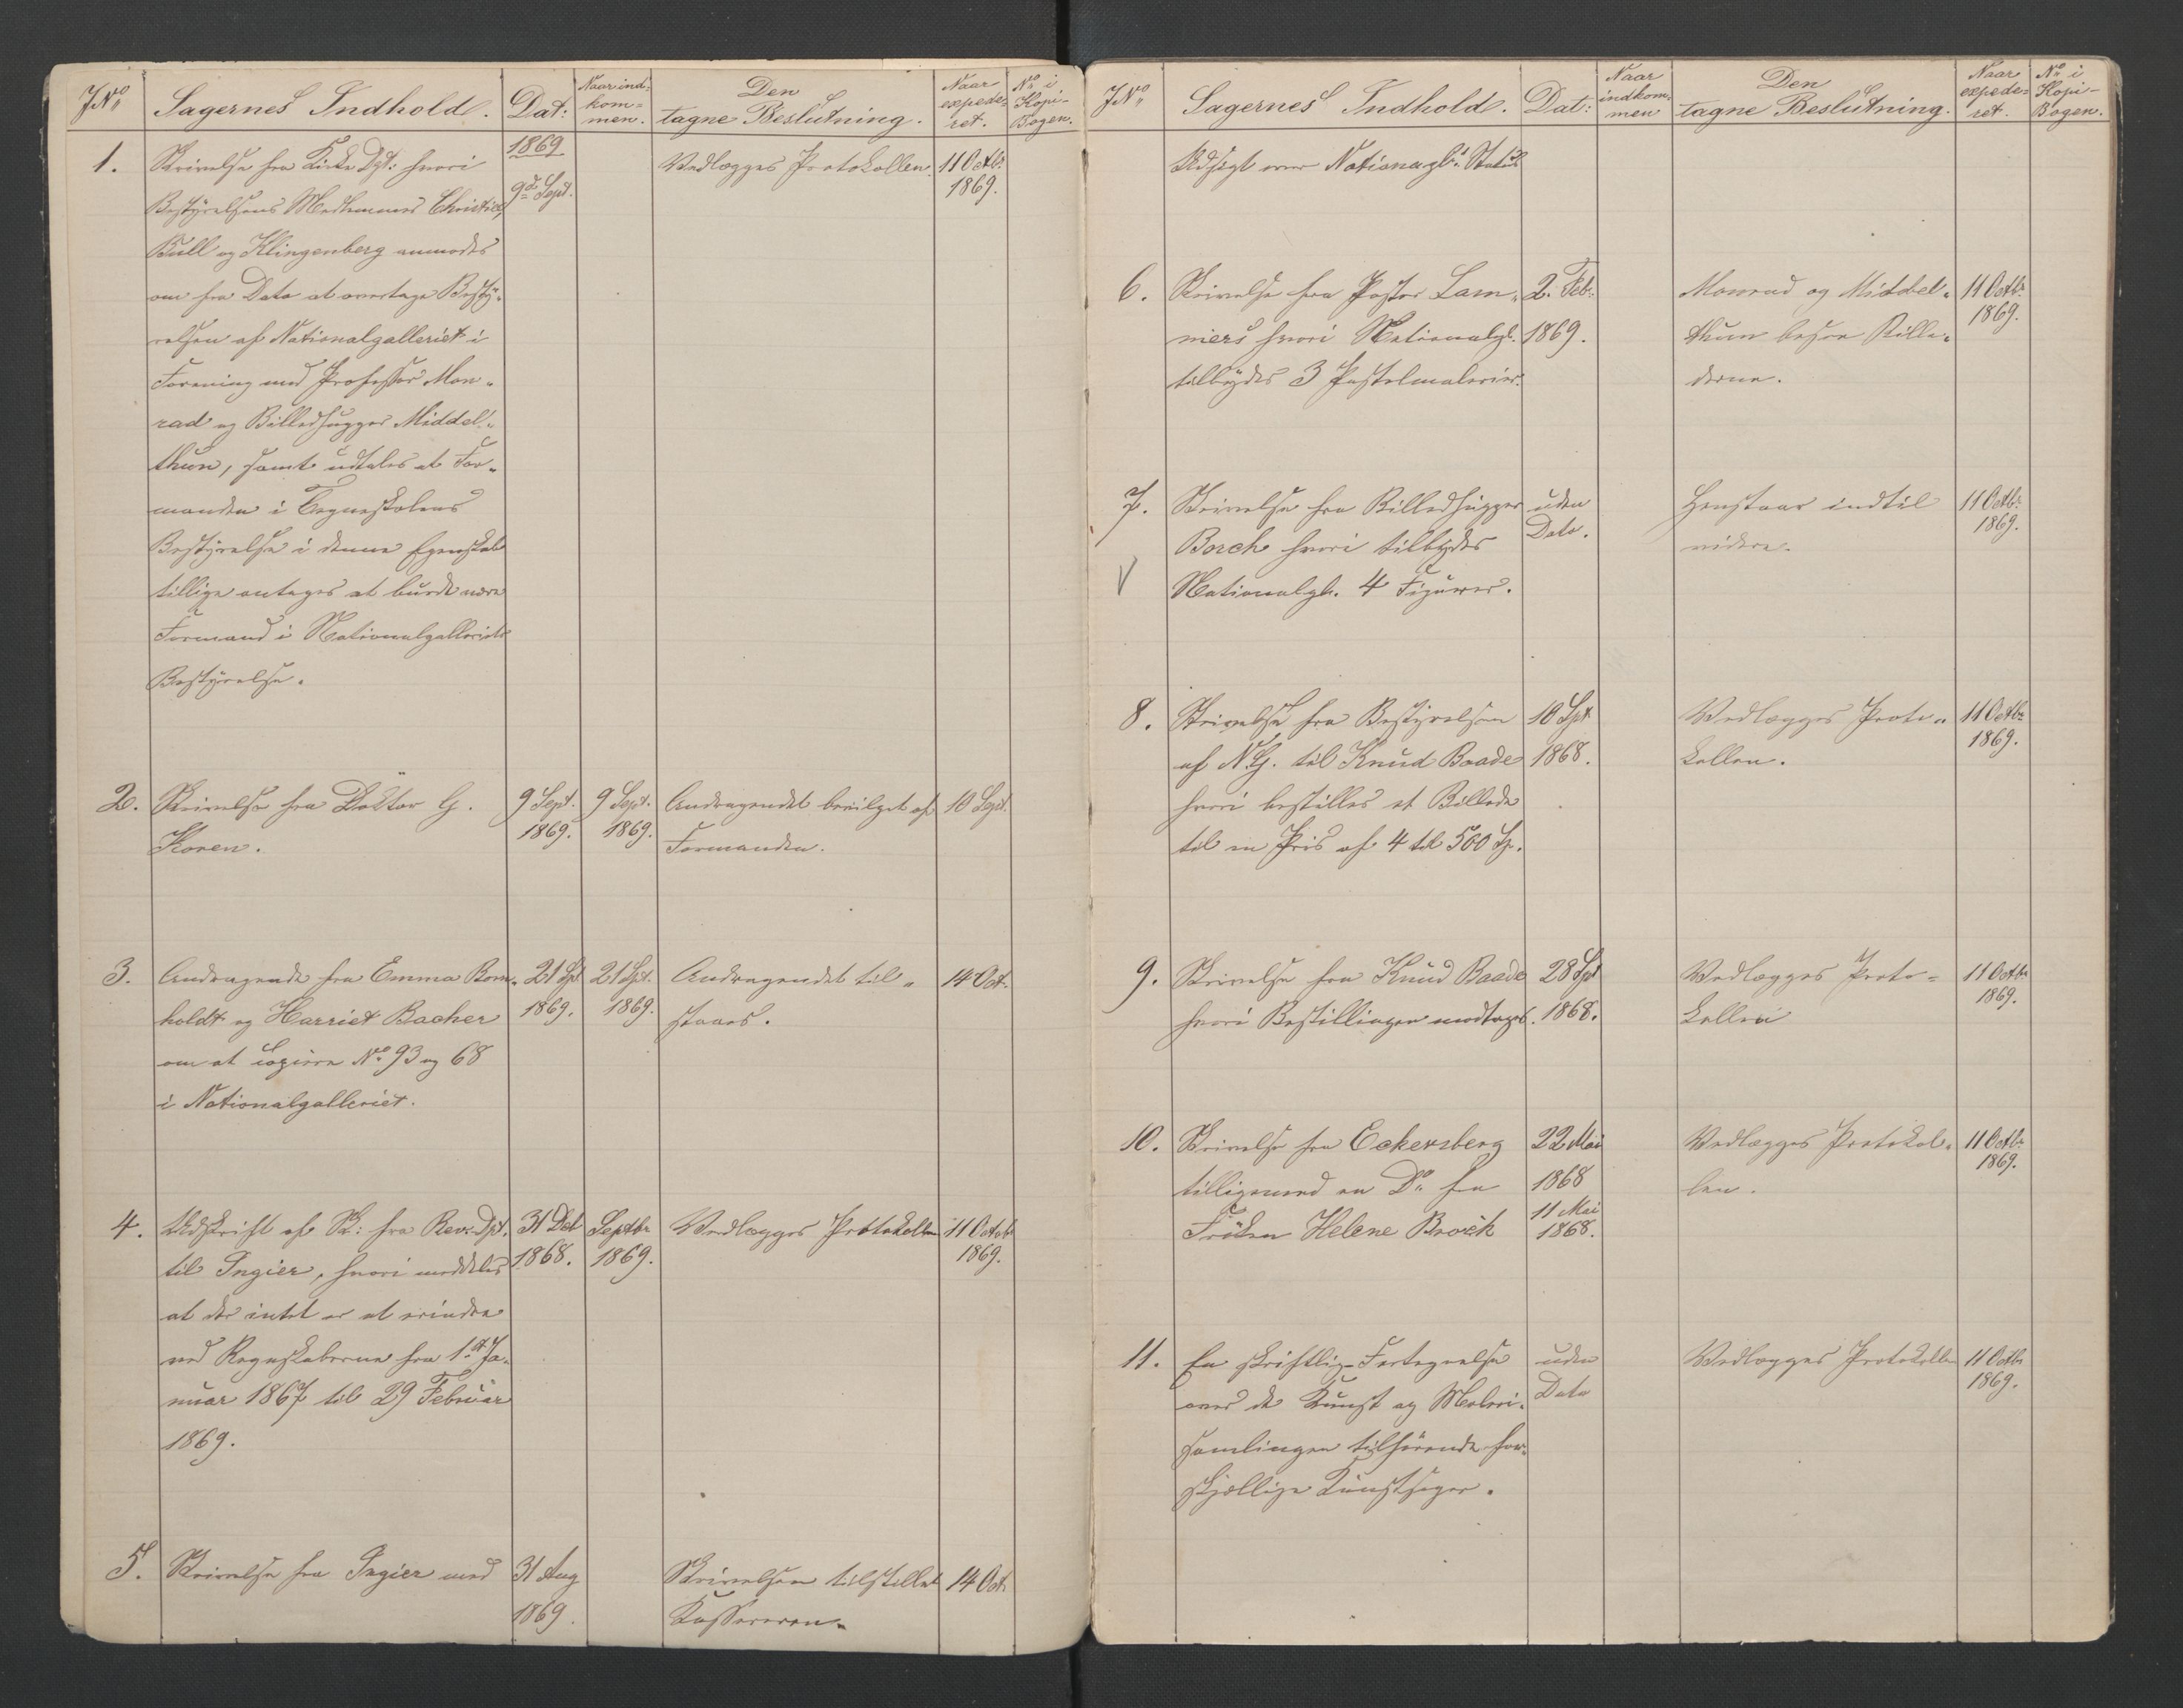 JNo Sagernes Indhold. Dat: Naar ind-kom-men. Den tagne Beslutning. Naar expede-ret. No i Kopi-Bogen.
1. Skrivelse fra Kirke Dpt: hvori 1869 9d Sept. Vedlægges Protokollen 11 Octb: 1869.
Bestyrelsens Medlemmer Christie,
Bull og Klingenberg anmodes
om fra Dato at overtage Besty-
relsen af Nationalgalleriet i
Forening med Professor Mon-
rad og Billedhugger Middel-
thun, samt udtales at For-
manden i Tegneskolens
Bestyrelse i denne Egenskab
tillige antages at burde være
Formand i Nationalgalleriets
Bestyrelse.
2. Skrivelse fra Doktor G. 9 Sept. 1869. 9 Sept. 1869. Andragendet bevilget af 10 Sept.
Koren. Formanden.
3. Andragende fra Emma Born- 21 Spt 1869. 21 Spt. 1869. Andragendet til- 14 Oct.
holdt og Harriet Backer staaes.
om at copiere No 93 og 68
i Nationalgalleriet.
4. Udskrift af Sk: fra Rev: Dpt. 31 Det 1868. Septbr 1869. Vedlægges Protokollen 11 Octob 1869.
til Ingier, hvori meddeles
at der intet er at erindre
ved Regnskaberne fra 1st Ja-
nuar 1867 til 29 Februar
1869.
5. Skrivelse fra Ingier med 31 Aug 1869. Skrivelsen tilstillet 14 Oct.
Kassereren.
JNo Sagernes Indhold. Dat: Naar indkom-men Den tagne Beslutning. Naar expede-ret. No i Kopi-Bogen.
Udsigt over Nationalgl:s Status
6. Skrivelse fra Pastor Lam- 2. Feb: Monrad og Middel- 11 Octb: 1869.
mers hvori Nationalgl. 1869. thun besee Bille-
tilbydes 3 Pastelmalerier. derne.
7. Skrivelse fra Billedhugger uden Henstaar indtil 11 Octb: 1869.
Borch hvori tilbydes Dato. videre.
V Nationalgl. 4 Figurer.
8. Skrivelse fra Bestyrelsen 10 Spt Vedlægges Proto- 11 Octbr 1869.
af N.G. til Knud Baade 1868. kollen.
hvori bestilles et Billede
til en Pris af 4 til 500 Sp.
9. Skrivelse fra Knud Baade 28 Spt Vedlægges Proto- 11 Octbr 1869.
hvori Bestillingen modtages. 1868. kollen
10. Skrivelse fra Eckersberg 22 Mai Vedlægges Protokol- 11 Octbr 1869.
tilligemed en Do fra 1868 len.
Frøken Helene Brock 11 Mai 1868.
11. En skriftlig Fortegnelse uden Vedlægges Protokollen 11 Octbr 1869.
over de Kunst og Maleri- Dato
samlingen tilhørende for-
skjellige Kunstsager.